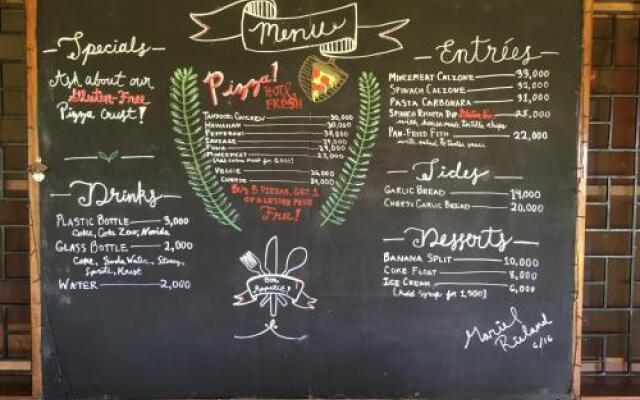 Menu
Specials
Ask about our
Gluten-Free
Pizza Crust!
Drinks
PLASTIC BOTTLE 3,000
Coke, Coke Zero, Novida
GLASS BOTTLE 2,000
Coke, Soda Water, Stoney,
Sprite, Krest
WATER 2,000
Pizza!
HOT &
FRESH
TANDOORI CHICKEN 30,000
HAWAIIAN 30,000
PEPPERONI
SAUSAGE 29,000
TUNA 29,000
MINCEMEAT 27,000
VEGGIE 26,000
CHEESE 24,000
BUY 5 PIZZAS, GET 1
OF A LESSER PRICE
Free!
Bon
Appetit!
Entrées
MINCEMEAT CALZONE 33,000
SPINACH CALZONE 32,000
PASTA CARBONARA 31,000
SPINACH RICOTTA DIP Gluten-Free 25,000
with housemade tortilla chips
PAN-FRIED FISH 22,000
Sides
GARLIC BREAD 14,000
CHEESY GARLIC BREAD 20,000
Desserts
BANANA SPLIT 10,000
COKE FLOAT 8,000
ICE CREAM 6,000
(Add syrup for 1,500)
6/16